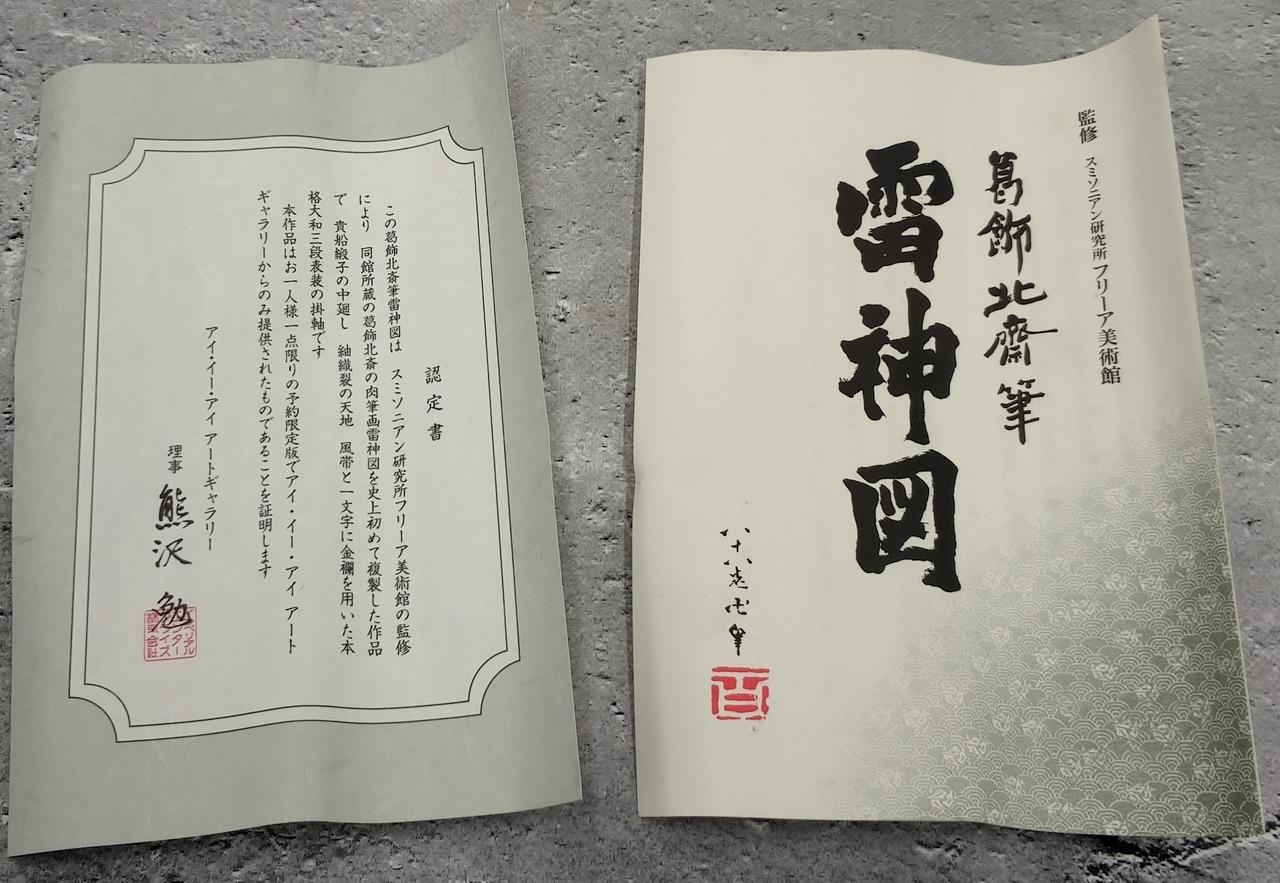 監修 スミソニアン研究所フリーア美術館
葛飾北齋筆
雷神図
八十八老卍筆
認定書
この葛飾北斎筆雷神図は スミソニアン研究所フリーア美術館の監修
により 同館所蔵の葛飾北斎の肉筆画雷神図を史上初めて複製した作品
で 貴船緞子の中廻し 紬織裂の天地 風帯と一文字に金襴を用いた本
格大和三段表装の掛軸です
本作品はお一人様一点限りの予約限定版でアイ・イー・アイ アート
ギャラリーからのみ提供されたものであることを証明します
アイ・イー・アイ アートギャラリー
理事 熊沢 勉